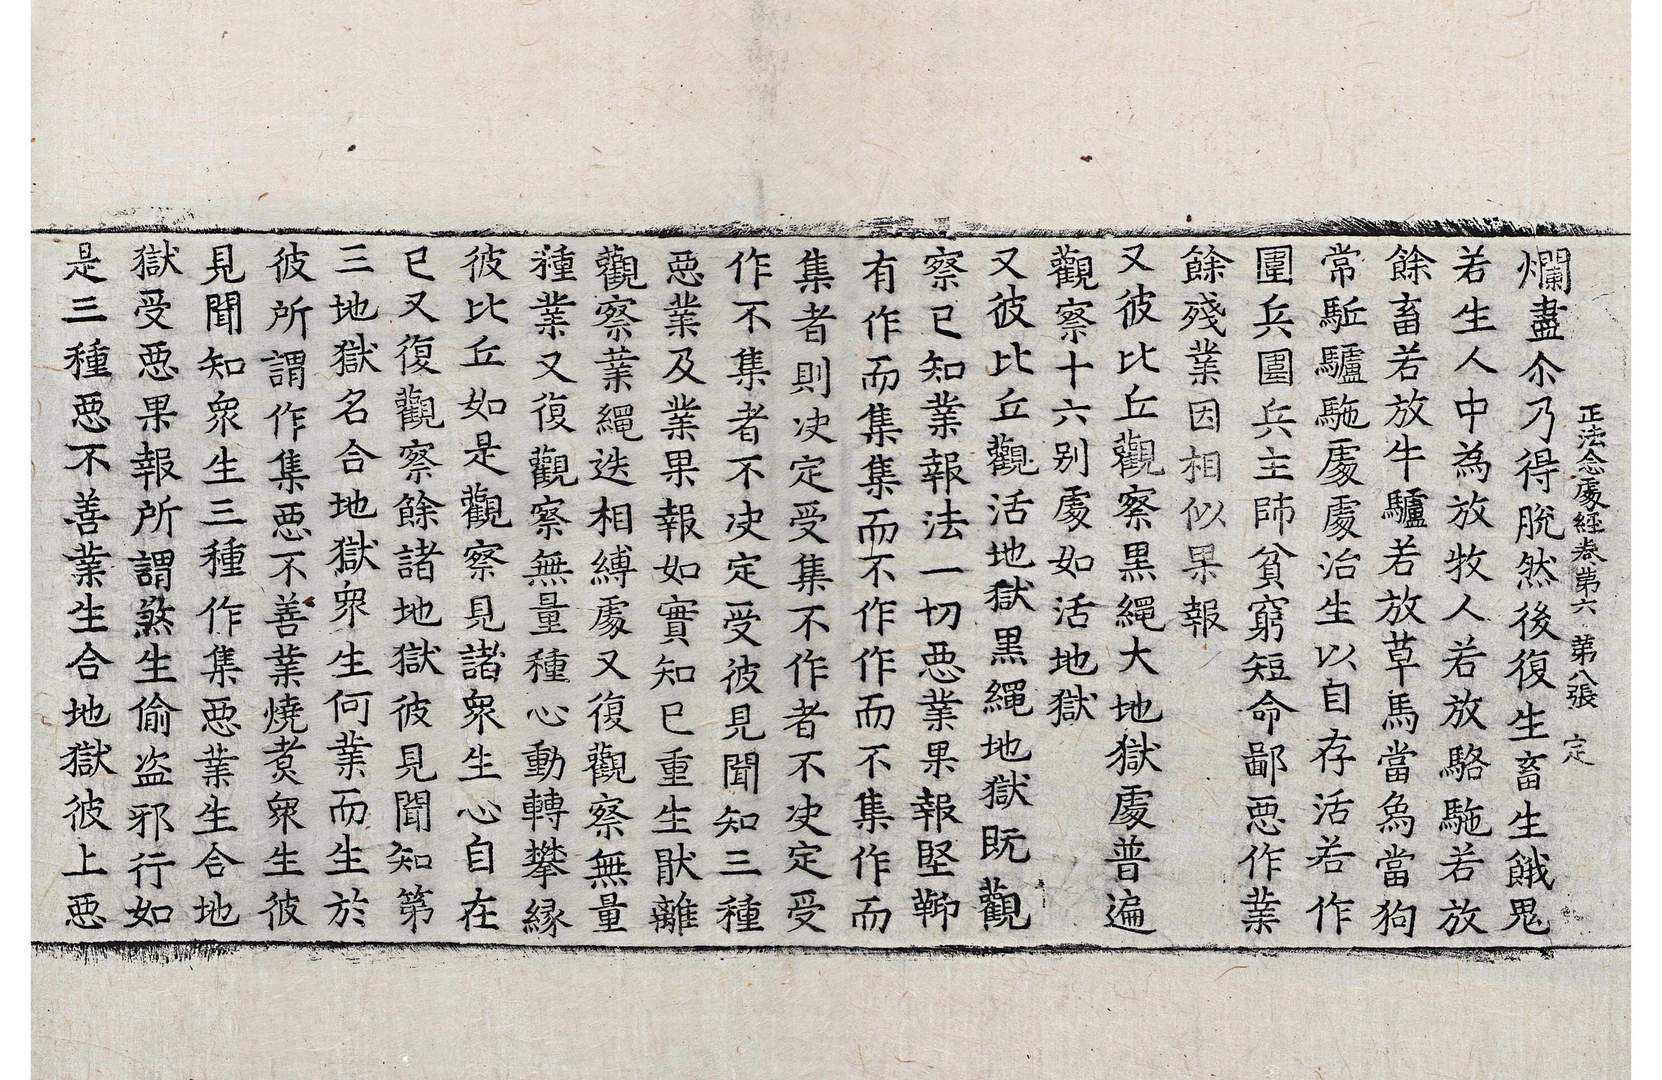 正法念處經卷第六 第八張 定
爛盡尒乃得脫然後復生畜生餓鬼
若生人中為放牧人若放駱駞若放
餘畜若放牛驢若放草馬當烏當狗
常駈驢駞處處治生以自存活若作
圍兵圍兵主師貧窮短命鄙惡作業
餘殘業因相似果報
又彼比丘觀察黒繩大地獄處普遍
觀察十六别處如活地獄
又彼比丘觀活地獄黒繩地獄既觀
察已知業報法一切惡業果報堅鞕
有作而集集而不作作而不集作而
集者則决定受集不作者不决定受
作不集者不决定受彼見聞知三種
惡業及業果報如實知已重生猒離
觀察業繩迭相縛處又復觀察無量
種業又復觀察無量種心動轉攀縁
彼比丘如是觀察見諸衆生心自在
已又復觀察餘諸地獄彼見聞知第
三地獄名合地獄衆生何業而生於
彼所謂作集惡不善業燒煑衆生彼
見聞知衆生三種作集惡業生合地
獄受惡果報所謂煞生偷盗邪行如
是三種惡不善業生合地獄彼上惡